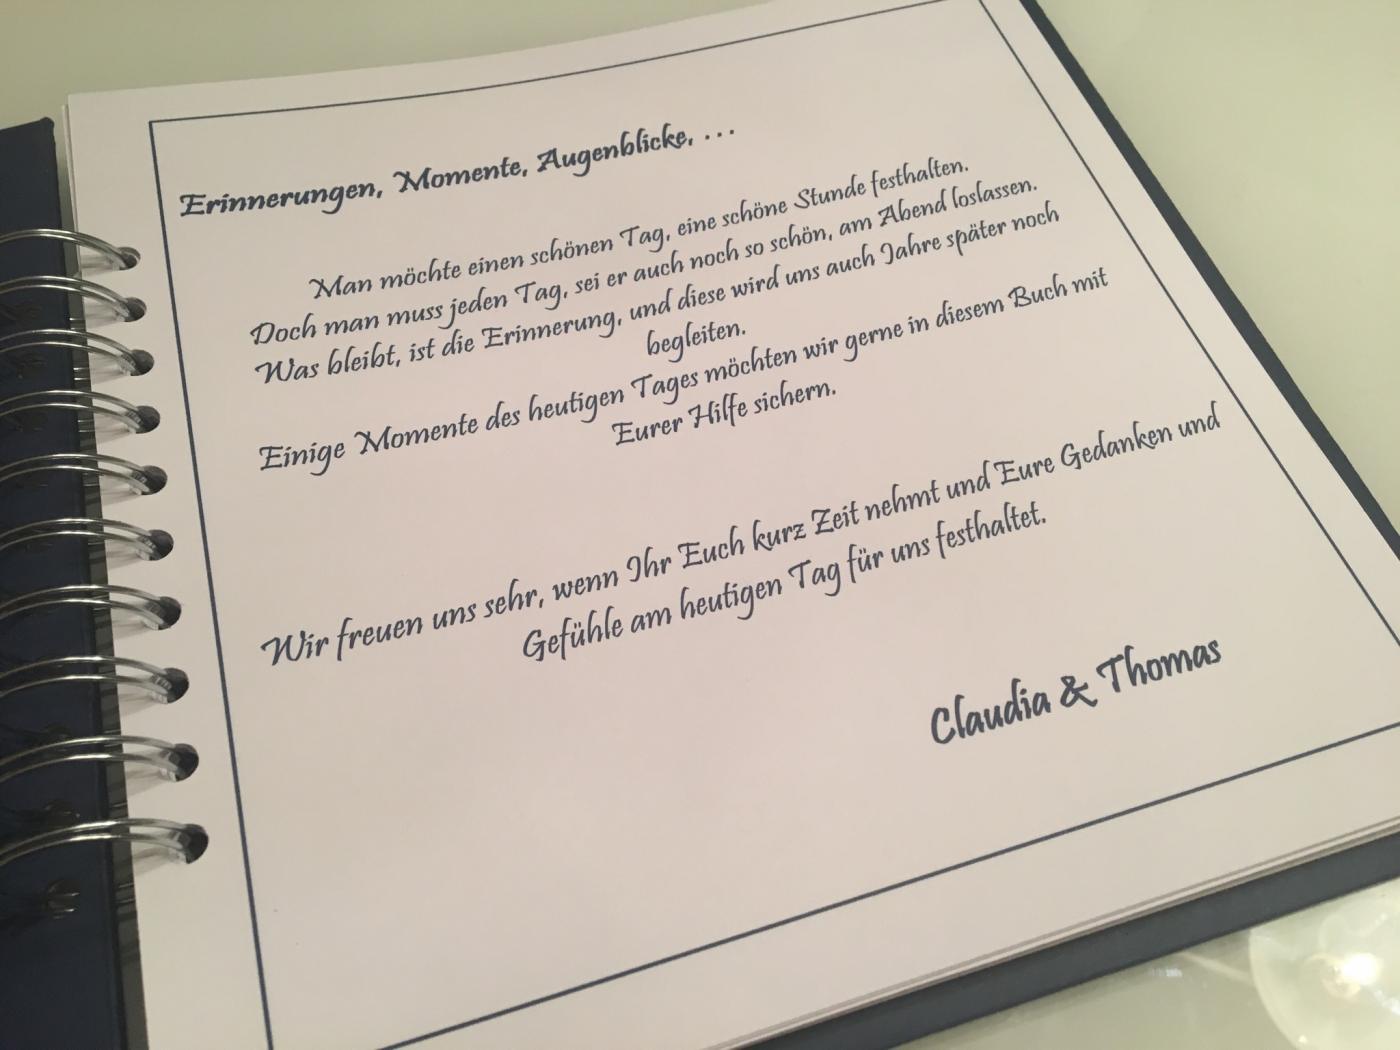 Erinnerungen, Momente, Augenblicke, ...
Man möchte einen schönen Tag, eine schöne Stunde festhalten.
Doch man muss jeden Tag, sei er auch noch so schön, am Abend loslassen.
Was bleibt, ist die Erinnerung, und diese wird uns auch Jahre später noch
begleiten.
Einige Momente des heutigen Tages möchten wir gerne in diesem Buch mit
Eurer Hilfe sichern.
Wir freuen uns sehr, wenn Ihr Euch kurz Zeit nehmt und Eure Gedanken und
Gefühle am heutigen Tag für uns festhaltet.
Claudia & Thomas